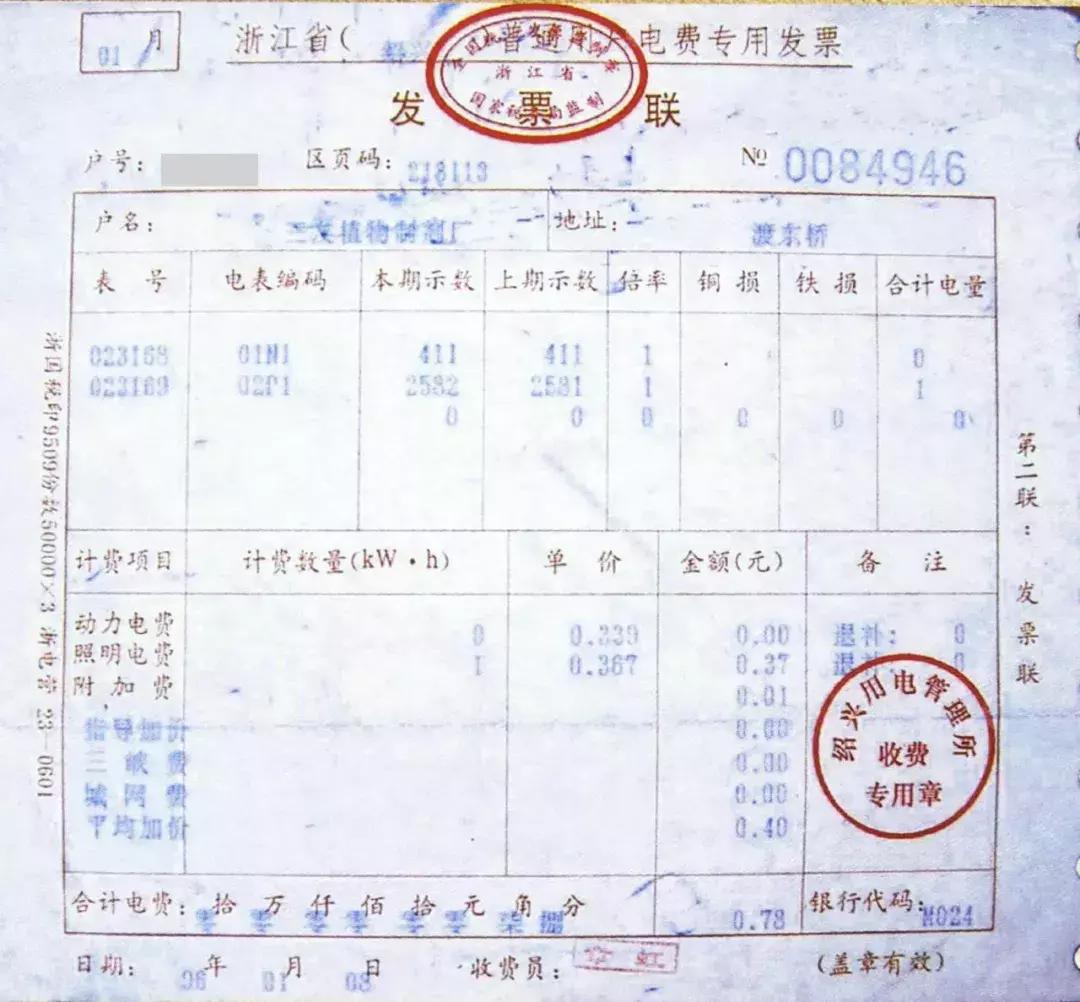 01 月
浙江省( 绍兴 普通用 电费专用发票
全国统一发票监制章
浙江省
国家税务局监制
发票联
户号: 区页码: 218113 № 0084946
户名: 三友植物制剂厂 地址: 渡东桥
表号 电表编码 本期示数 上期示数 倍率 铜损 铁损 合计电量
023168 01N1 411 411 1 0
023169 02P1 2582 2581 1 1
0 0 0 0 0 0
计费项目 计费数量(kW·h) 单价 金额(元) 备注
动力电费 0 0.339 0.00 退补: 0
照明电费 1 0.367 0.37 退补: 0
附加费 0.01
指导加价 0.00
三峡费 0.00
城网费 0.00
平均加价 0.40
绍兴用电管理所
收费
专用章
合计电费: 拾 万 仟 佰 拾 元 角 分 0.78 银行代码: M024
零 零 零 零 零 零 柒 捌
日期: 96 年 01 月 08 日 收费员: (盖章有效)
浙国税印9509份数50000×3 浙电营 23-0601
第二联:发票联